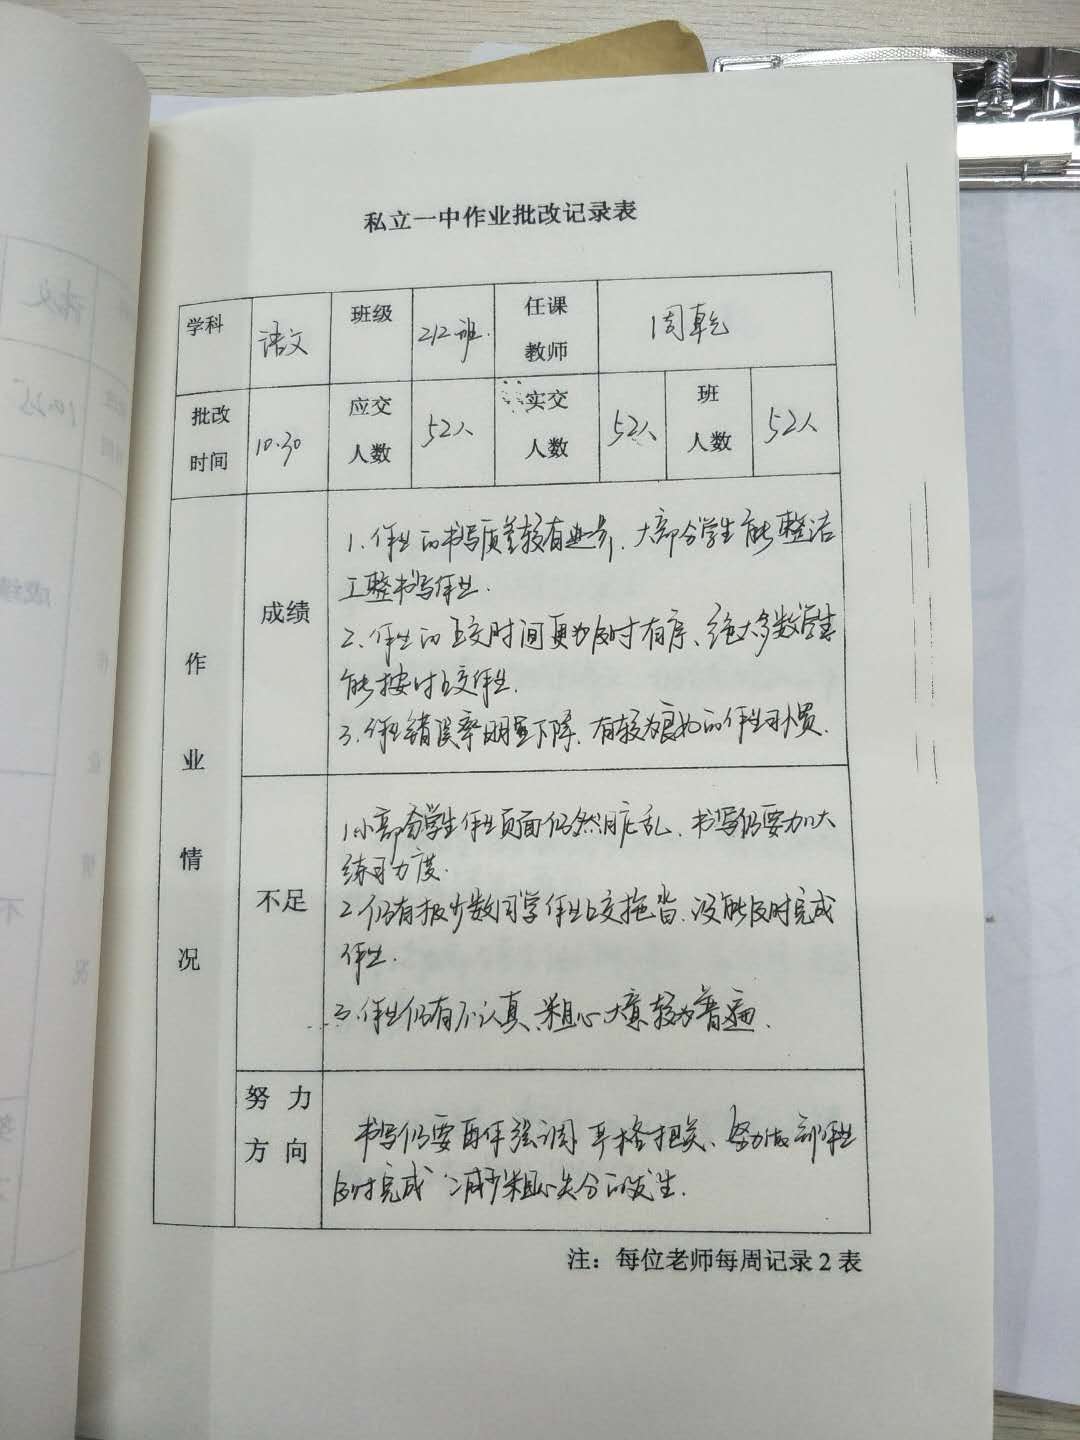 私立一中作业批改记录表
学科 语文 班级 212班. 任课教师 周乾
批改时间 10.30 应交人数 52人 实交人数 52人 班人数 52人
作业情况
成绩
1.作业的书写质量较有进步，大部分学生能整洁
工整书写作业.
2.作业的上交时间更为及时有序、绝大多数学生
能按时上交作业.
3.作业错误率明显下降，有较为良好的作业习惯.
不足
1.小部分学生作业页面仍然脏乱，书写仍要加大
练习力度.
2.仍有极少数同学作业上交拖沓，没能及时完成
作业.
3.作业仍有不认真、粗心大意较为普遍.
努力方向
书写仍要再作强调 严格把关、努力做 作业
及时完成 减少粗心失分的发生.
注：每位老师每周记录2表
语文
10.25
成绩